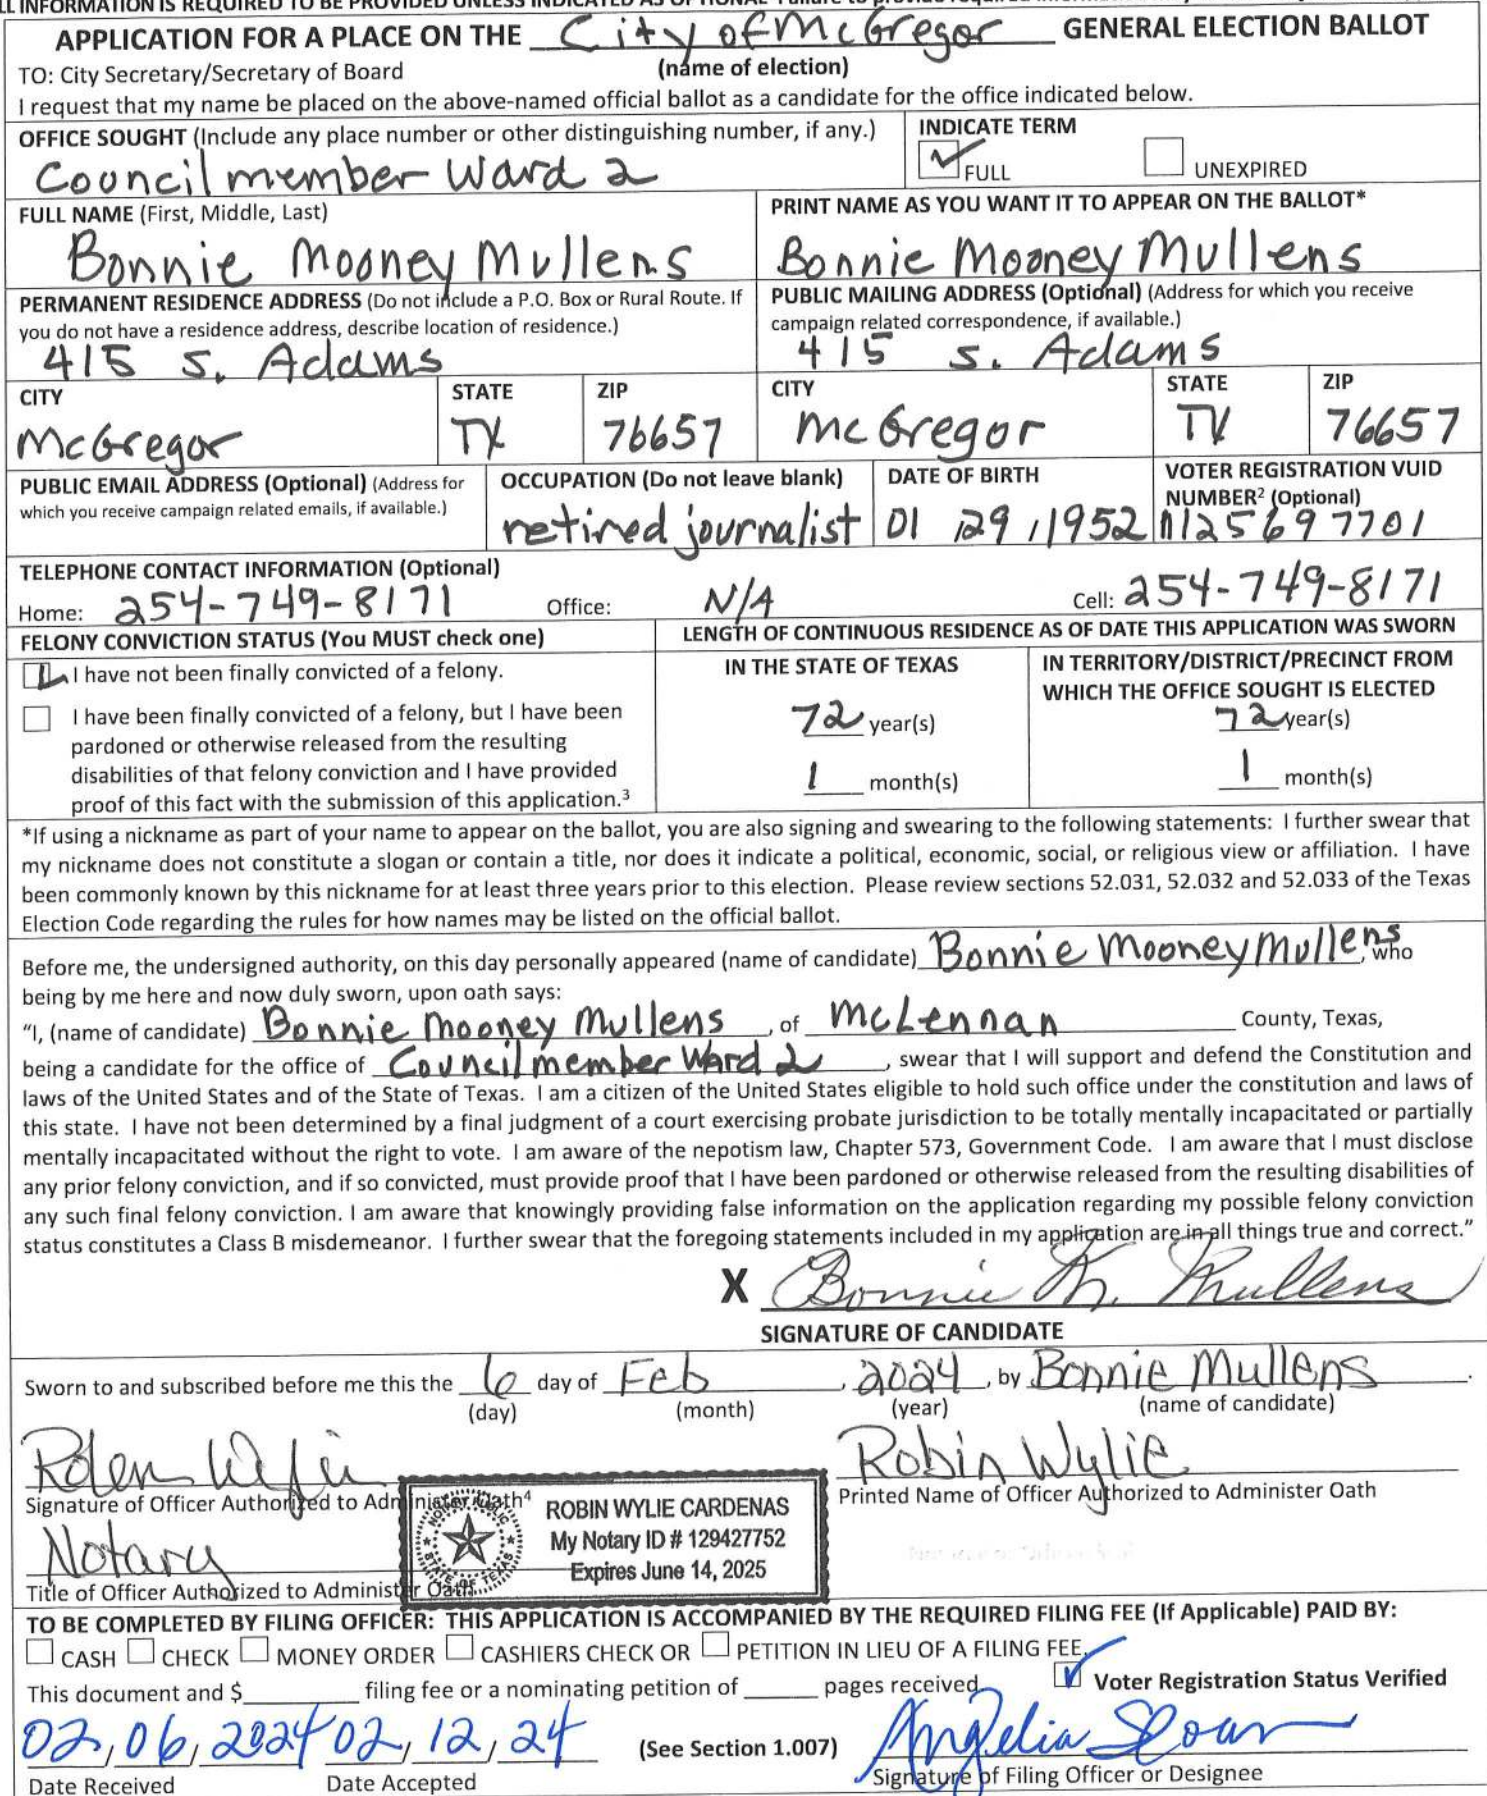 APPLICATION FOR A PLACE ON THE City of McGregor GENERAL ELECTION BALLOT
TO: City Secretary/Secretary of Board (name of election)
I request that my name be placed on the above-named official ballot as a candidate for the office indicated below.
OFFICE SOUGHT (Include any place number or other distinguishing number, if any.)
Council member Ward 2
INDICATE TERM
FULL UNEXPIRED
FULL NAME (First, Middle, Last)
Bonnie Mooney Mullens
PRINT NAME AS YOU WANT IT TO APPEAR ON THE BALLOT*
Bonnie Mooney Mullens
PERMANENT RESIDENCE ADDRESS (Do not include a P.O. Box or Rural Route. If
you do not have a residence address, describe location of residence.)
415 S. Adams
PUBLIC MAILING ADDRESS (Optional) (Address for which you receive
campaign related correspondence, if available.)
415 S. Adams
CITY STATE ZIP CITY STATE ZIP
McGregor TX 76657 McGregor TX 76657
PUBLIC EMAIL ADDRESS (Optional) (Address for
which you receive campaign related emails, if available.)
OCCUPATION (Do not leave blank)
retired journalist
DATE OF BIRTH
01 / 29 / 1952
VOTER REGISTRATION VUID
NUMBER² (Optional)
1125697701
TELEPHONE CONTACT INFORMATION (Optional)
Home: 254-749-8171 Office: N/A Cell: 254-749-8171
FELONY CONVICTION STATUS (You MUST check one)
I have not been finally convicted of a felony.
I have been finally convicted of a felony, but I have been
pardoned or otherwise released from the resulting
disabilities of that felony conviction and I have provided
proof of this fact with the submission of this application.³
LENGTH OF CONTINUOUS RESIDENCE AS OF DATE THIS APPLICATION WAS SWORN
IN THE STATE OF TEXAS
72 year(s)
1 month(s)
IN TERRITORY/DISTRICT/PRECINCT FROM
WHICH THE OFFICE SOUGHT IS ELECTED
72 year(s)
1 month(s)
*If using a nickname as part of your name to appear on the ballot, you are also signing and swearing to the following statements: I further swear that
my nickname does not constitute a slogan or contain a title, nor does it indicate a political, economic, social, or religious view or affiliation. I have
been commonly known by this nickname for at least three years prior to this election. Please review sections 52.031, 52.032 and 52.033 of the Texas
Election Code regarding the rules for how names may be listed on the official ballot.
Before me, the undersigned authority, on this day personally appeared (name of candidate) Bonnie Mooney Mullens, who
being by me here and now duly sworn, upon oath says:
"I, (name of candidate) Bonnie Mooney Mullens, of McLennan County, Texas,
being a candidate for the office of Council member Ward 2, swear that I will support and defend the Constitution and
laws of the United States and of the State of Texas. I am a citizen of the United States eligible to hold such office under the constitution and laws of
this state. I have not been determined by a final judgment of a court exercising probate jurisdiction to be totally mentally incapacitated or partially
mentally incapacitated without the right to vote. I am aware of the nepotism law, Chapter 573, Government Code. I am aware that I must disclose
any prior felony conviction, and if so convicted, must provide proof that I have been pardoned or otherwise released from the resulting disabilities of
any such final felony conviction. I am aware that knowingly providing false information on the application regarding my possible felony conviction
status constitutes a Class B misdemeanor. I further swear that the foregoing statements included in my application are in all things true and correct."
X Bonnie M. Mullens
SIGNATURE OF CANDIDATE
Sworn to and subscribed before me this the 6 day of Feb, 2024, by Bonnie Mullens.
(day) (month) (year) (name of candidate)
Robin Wylie
Signature of Officer Authorized to Administer Oath⁴
Robin Wylie
Printed Name of Officer Authorized to Administer Oath
Notary
Title of Officer Authorized to Administer Oath
NOTARY PUBLIC
STATE OF TEXAS
ROBIN WYLIE CARDENAS
My Notary ID # 129427752
Expires June 14, 2025
TO BE COMPLETED BY FILING OFFICER: THIS APPLICATION IS ACCOMPANIED BY THE REQUIRED FILING FEE (If Applicable) PAID BY:
CASH CHECK MONEY ORDER CASHIERS CHECK OR PETITION IN LIEU OF A FILING FEE.
This document and $ filing fee or a nominating petition of pages received. Voter Registration Status Verified
02, 06, 2024 02, 12, 24 (See Section 1.007) Angelia Sloan
Date Received Date Accepted Signature of Filing Officer or Designee